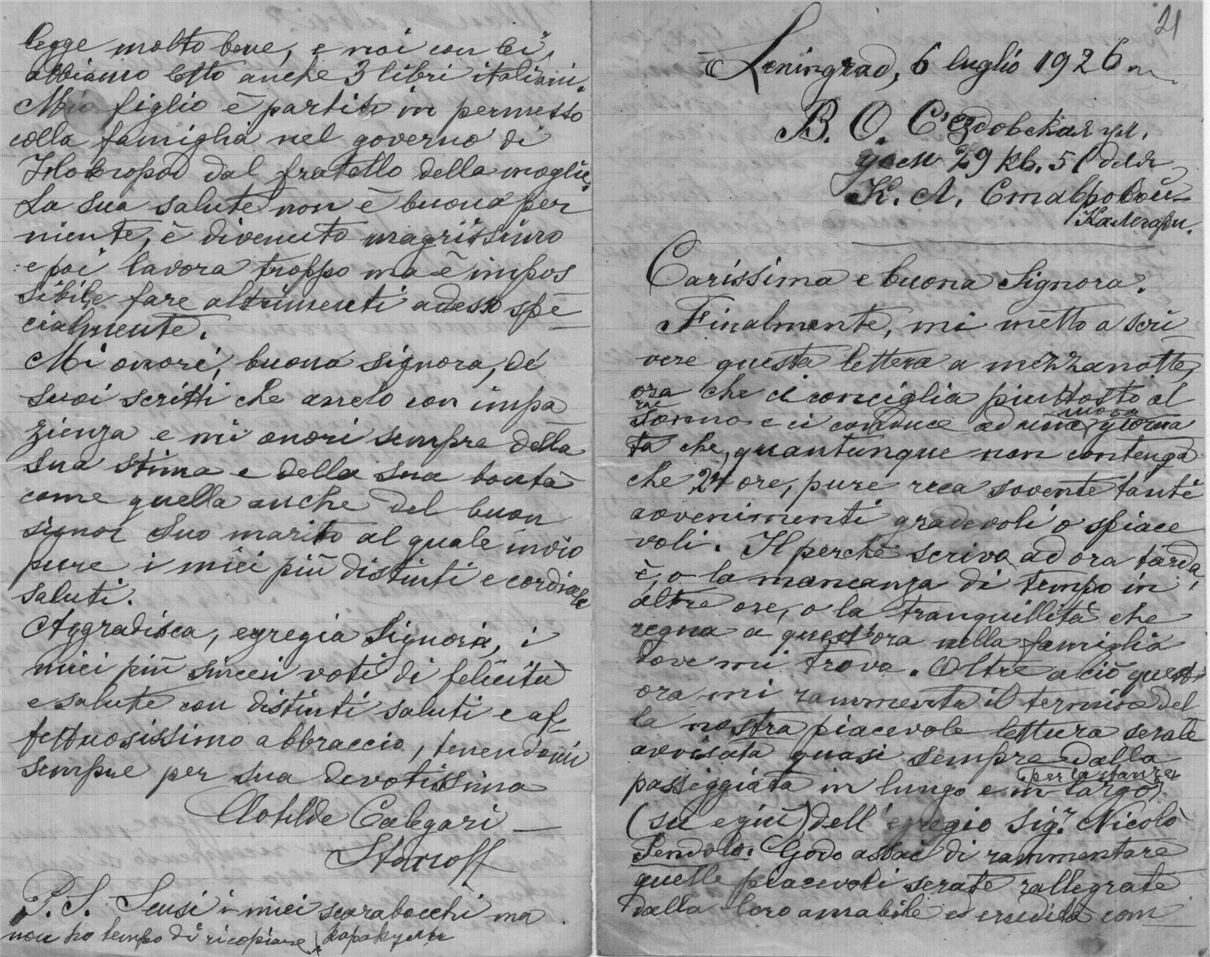 21
Leningrad, 6 luglio 1926
В. О. Съездовская ул.
дом 29 кв. 51 для
К. Л. Ставровой
Калегари.
Carissima e buona Signora.
Finalmente, mi metto a scri
vere questa lettera a mezzanotte,
ora che ci conciglia piuttosto al
sonno e ci conduce ad una nuova giorna
ta che, quantunque non contenga
che 24 ore, pure reca sovente tanti
avvenimenti gradevoli o spiace
voli. Il perchè scrivo ad ora tarda,
è, o la mancanza di tempo in
altre ore, o la tranquillità che
regna a quest'ora nella famiglia
dove mi trovo. Oltre a ciò quest'
ora mi rammenta il termine del
la nostra piacevole lettura serale
avvisata quasi sempre dalla
passeggiata in lungo e in largo per la stanza
(su e giù) dell' egregio Sigr. Nicolò
Pendolo. Godo assai di rammentare
quelle piacevoli serate rallegrate
dalla loro amabile ed erudita com
legge molto bene, e noi con lei,
abbiamo letto anche 3 libri italiani.
Mio figlio è partito in permesso
colla famiglia nel governo di
dal fratello della moglie.
La sua salute non è buona per
niente, è divenuto magrissimo
e poi lavora troppo ma è impos
sibile fare altrimenti adesso spe
cialmente.
Mi onori, buona signora, de'
suoi scritti che anelo con impa
zienza e mi onori sempre della
sua stima e della sua bontà
come quella anche del buon
signor suo marito al quale invio
pure i miei più distinti e cordiali
saluti.
Aggradisca, egregia Signora, i
miei più sinceri voti di felicità
e salute con distinti saluti e af
fettuosissimo abbraccio, tenendomi
sempre per sua devotissima
Clotilde Calegari
P.S. Scusi i miei scarabocchi ma
non ho tempo di ricopiare